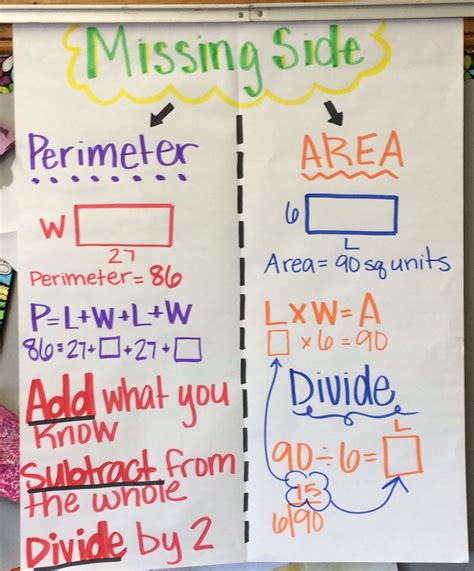 Missing Side
Perimeter
W
27
Perimeter = 86
P=L+W+L+W
86=27+□+27+□
Add what you
know
Subtract from
the whole
Divide by 2
AREA
6
L
Area = 90 sq units
L x W = A
□ x 6 = 90
Divide
L
90 ÷ 6 = □
15
6|90